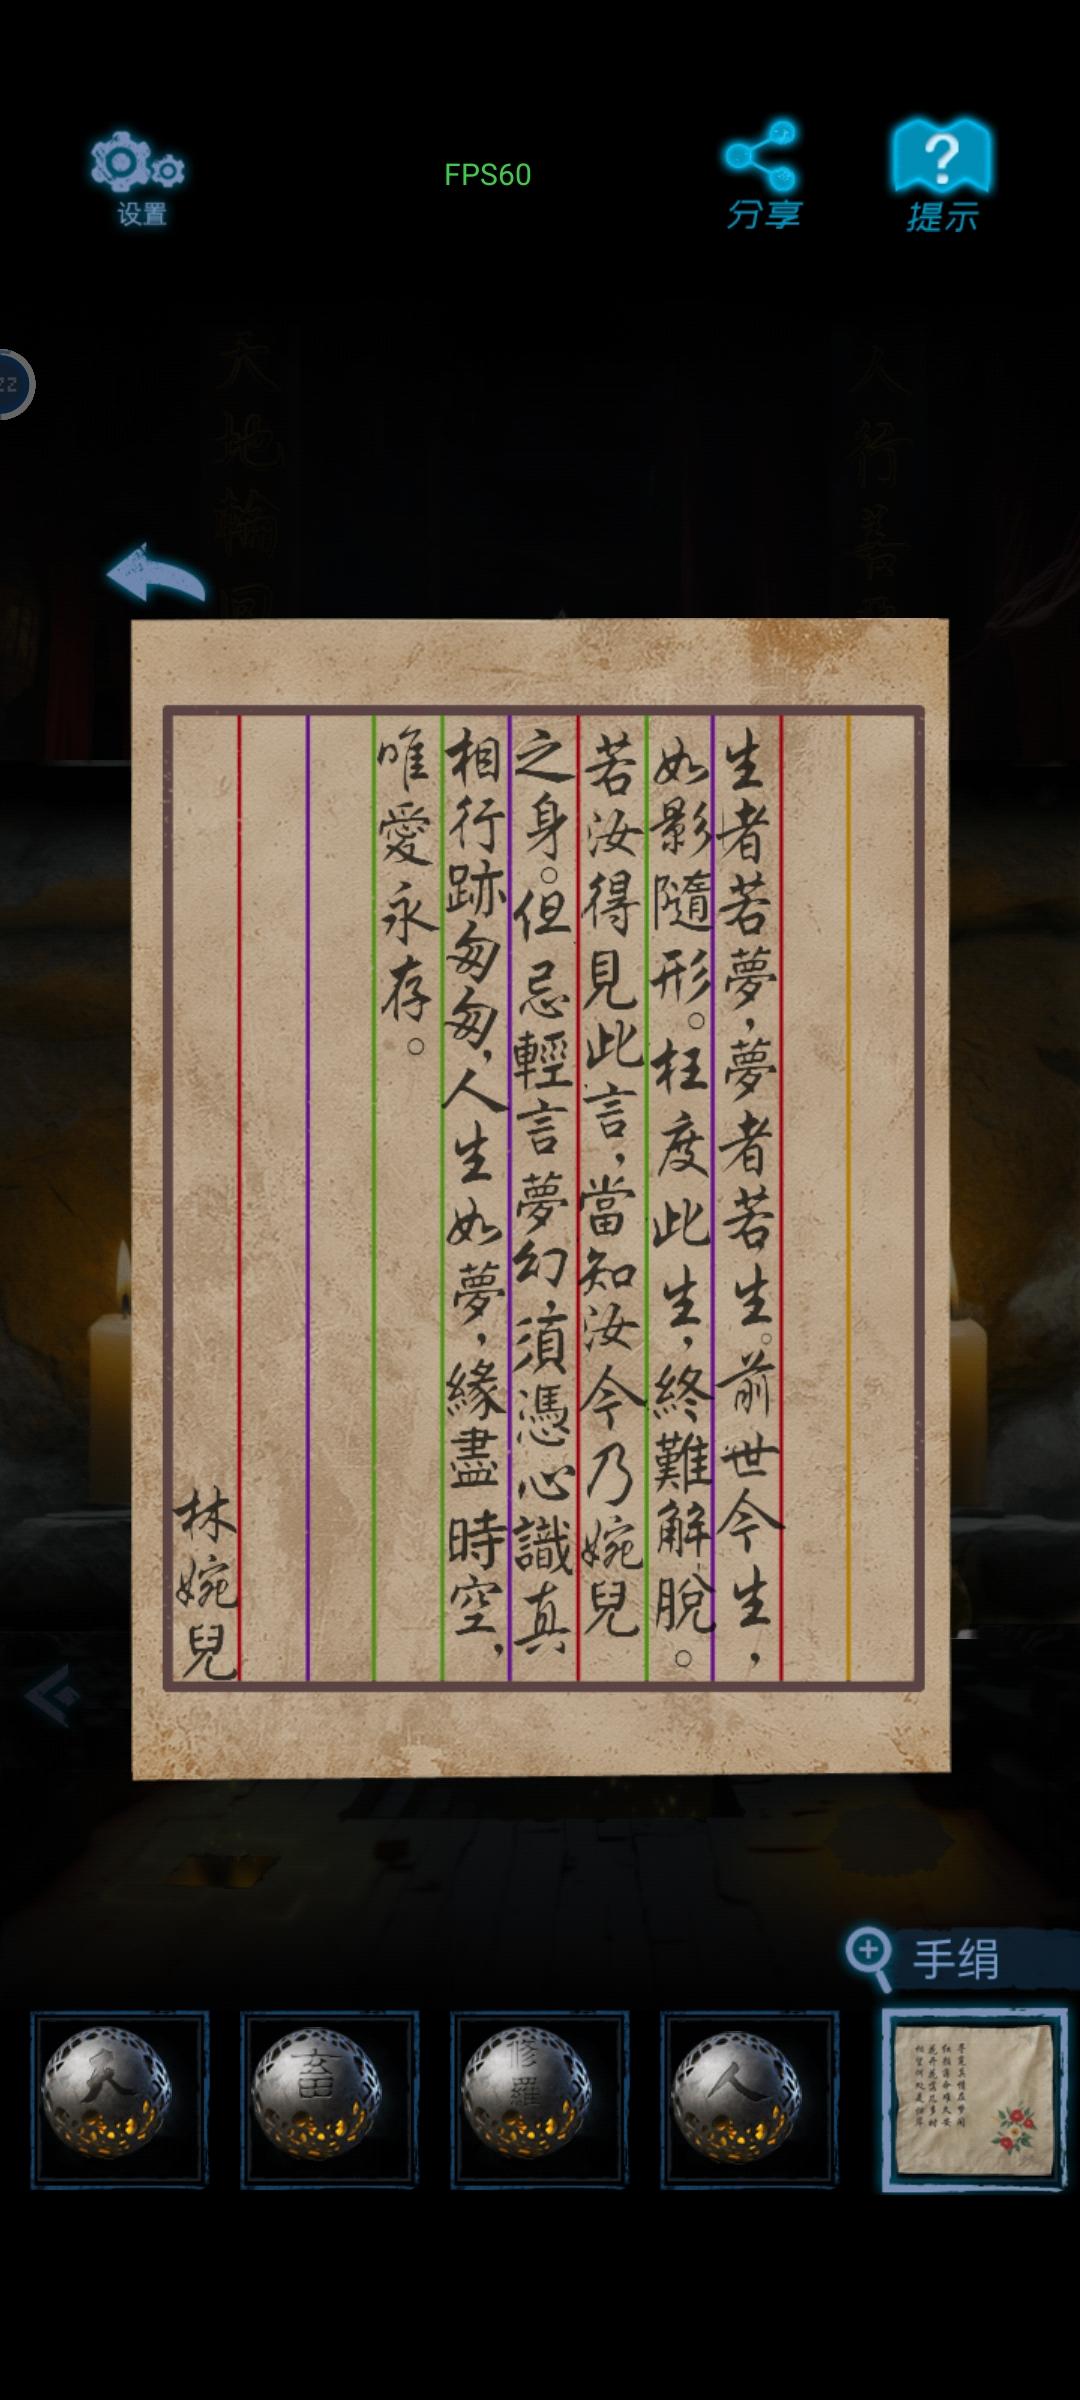 设置
FPS60
分享
提示
22
天地輪回
人行善
生者若夢，夢者若生。前世今生，
如影隨形。枉度此生，終難解脫。
若汝得見此言，當知汝今乃婉兒
之身。但忌輕言夢幻，須憑心識真
相行跡匆匆，人生如夢，緣盡時空，
唯愛永存。
林婉兒
手绢
天
畜
修羅
人